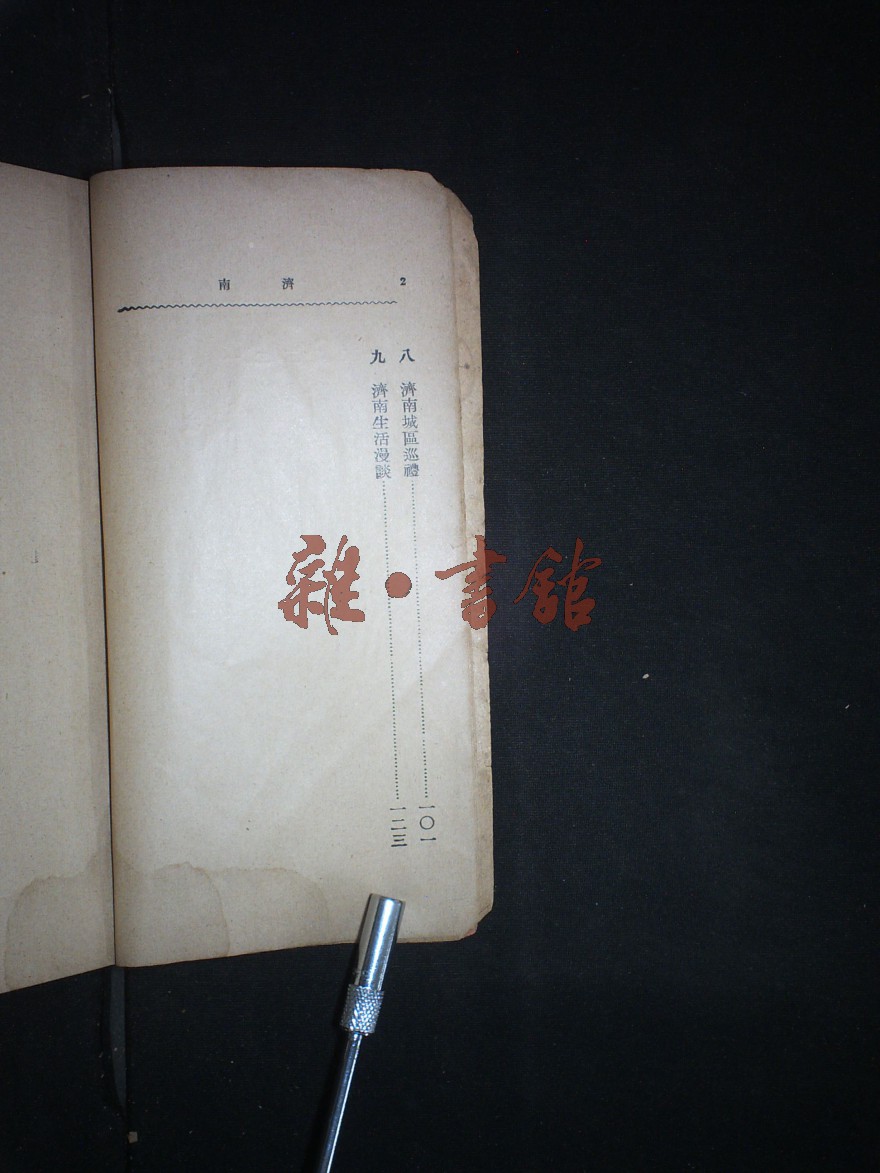 濟南 2
八 濟南城區巡禮……一〇一
九 濟南生活漫談……一二三
雜·書館